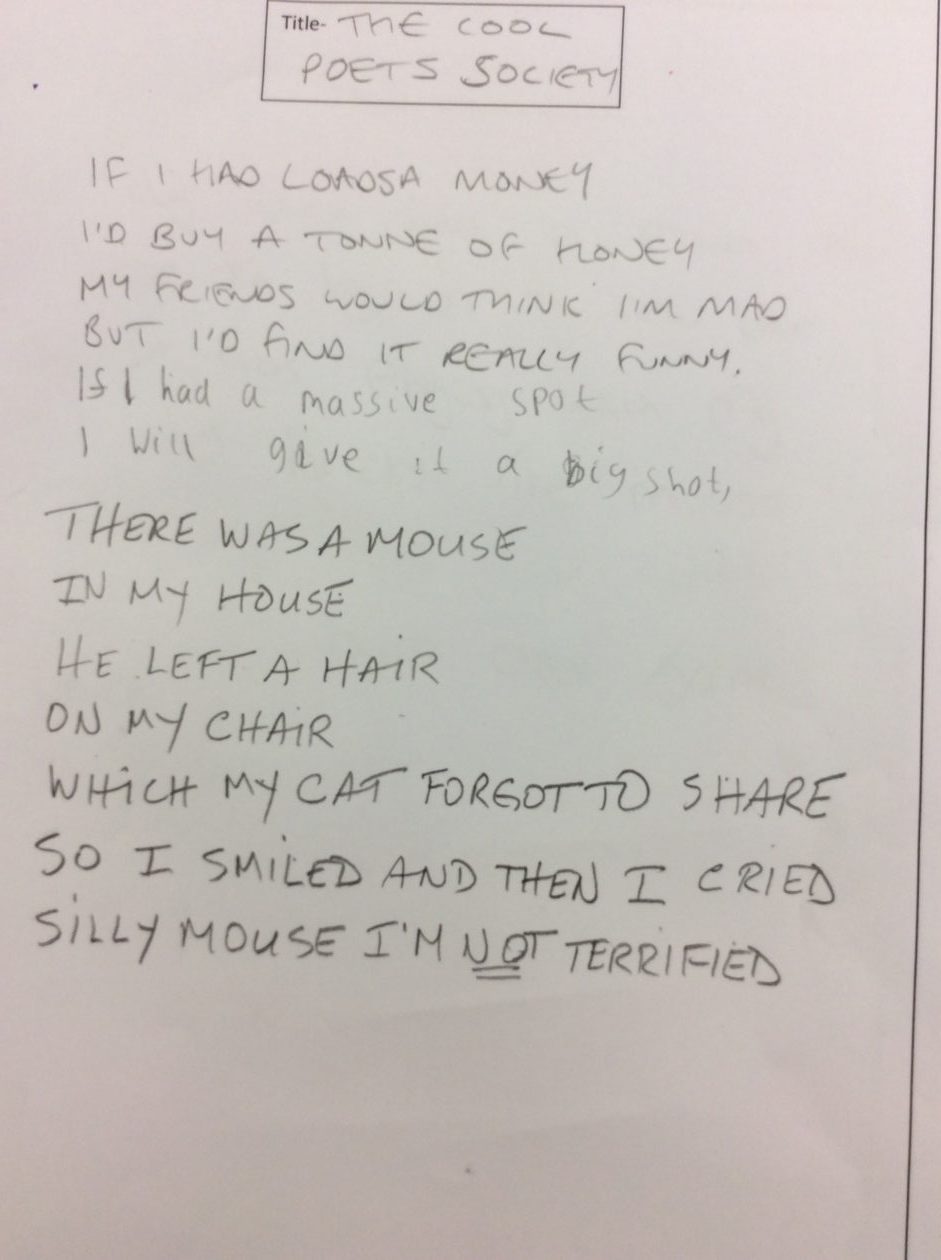 Title- THE COOL
POETS SOCIETY
IF I HAD LOADSA MONEY
I'D BUY A TONNE OF HONEY
MY FRIENDS WOULD THINK I'M MAD
BUT I'D FIND IT REALLY FUNNY.
If I had a massive spot
I will give it a big shot,
THERE WAS A MOUSE
IN MY HOUSE
HE LEFT A HAIR
ON MY CHAIR
WHICH MY CAT FORGOT TO SHARE
SO I SMILED AND THEN I CRIED
SILLY MOUSE I'M NOT TERRIFIED